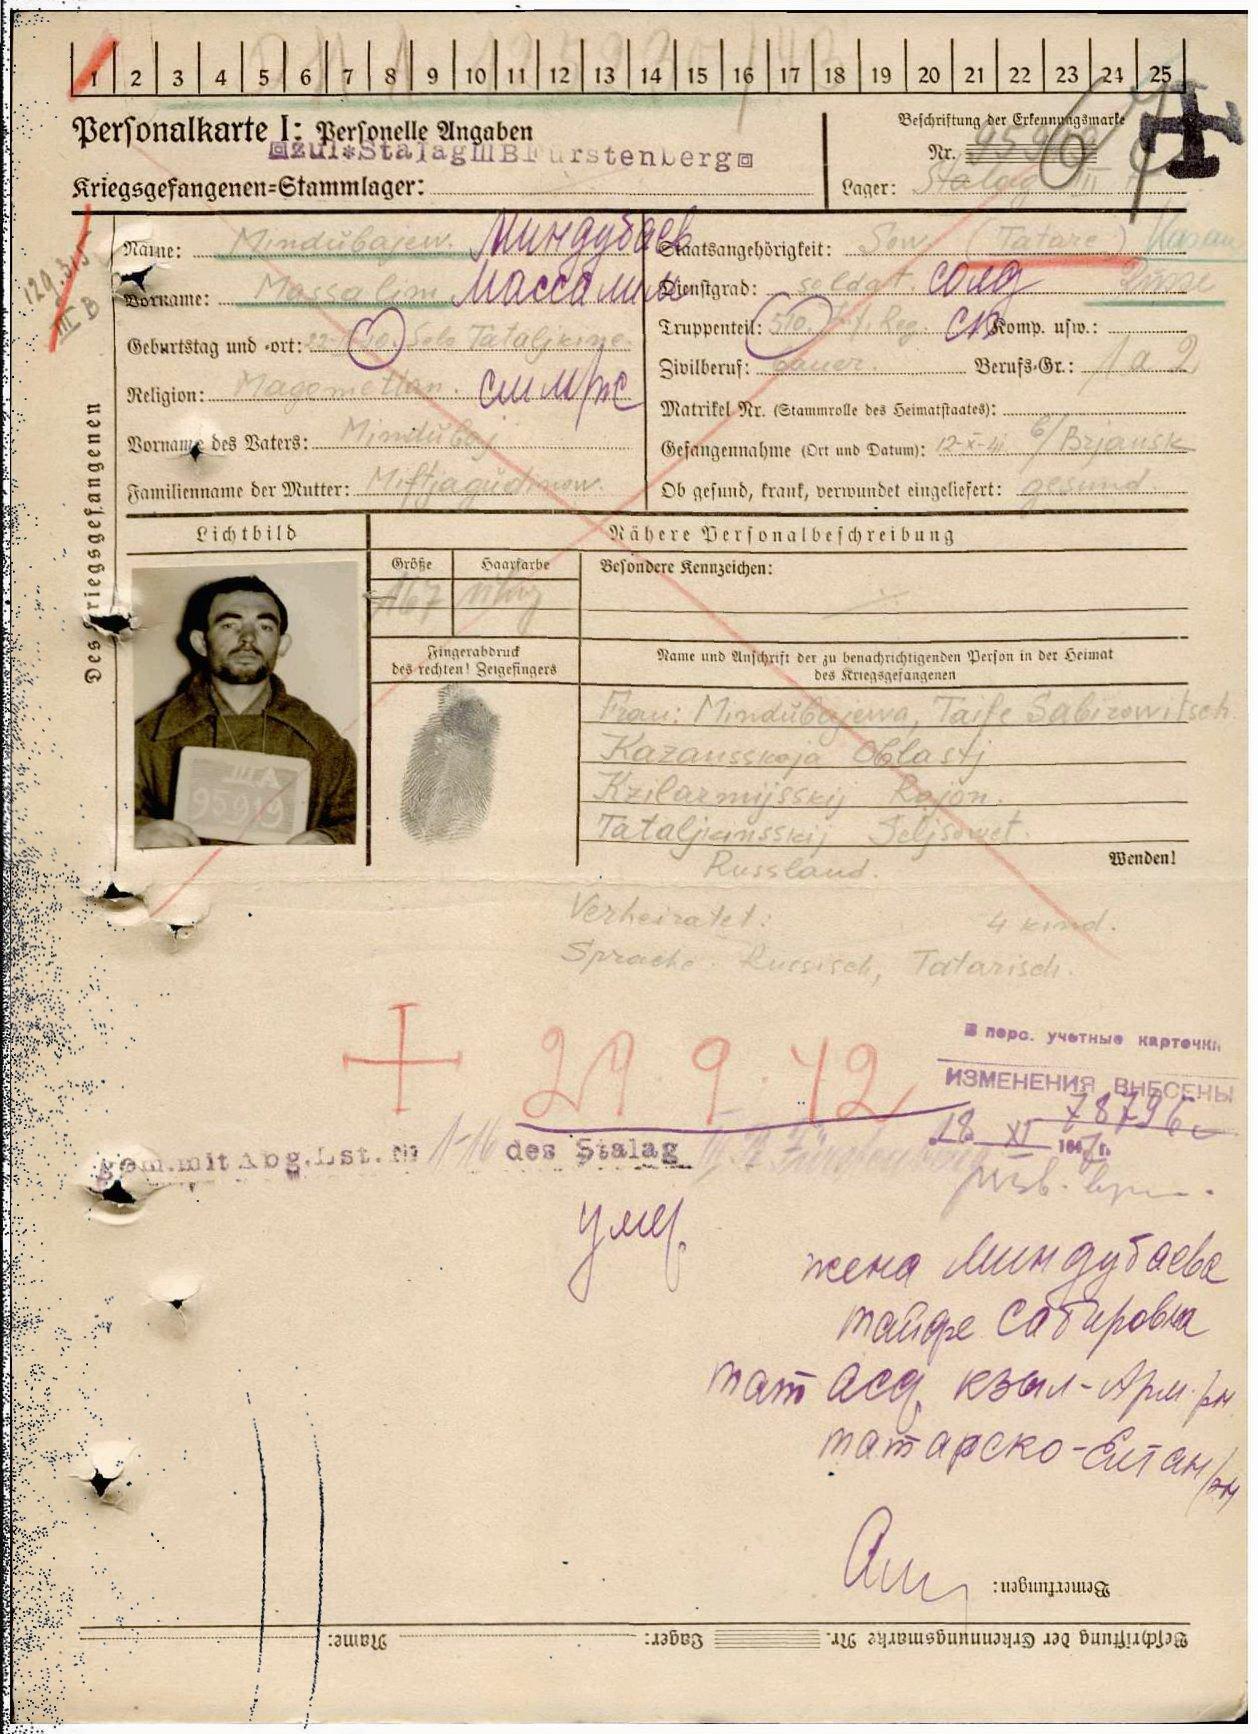 1 2 3 4 5 6 7 8 9 10 11 12 13 14 15 16 17 18 19 20 21 22 23 24 25
Personalkarte I: Personelle Angaben
zul*Stalag III B Fürstenberg
Kriegsgefangenen=Stammlager:
Beschriftung der Erkennungsmarke
Nr.
Lager: Stalag III
129.315
III B
Des Kriegsgefangenen
Name: Mindubajew. Миндубаев
Vorname: Massalim Массалим
Geburtstag und -ort: Selo
Religion: Magomettan.
Vorname des Vaters: Mindubaj
Familienname der Mutter: Miftjagudinow.
Staatsangehörigkeit: Sow. (Tatare) Kasan
Dienstgrad: soldat. солд Russe
Truppenteil: 510. Reg. Komp. usw.:
Zivilberuf: Bauer. Berufs-Gr.: 1 a 2
Matrikel Nr. (Stammrolle des Heimatstaates):
Gefangennahme (Ort und Datum): 12-X-41 b/Brjansk
Ob gesund, krank, verwundet eingeliefert: gesund
Lichtbild
Nähere Personalbeschreibung
Größe Haarfarbe Besondere Kennzeichen:
167
Fingerabdruck
des rechten! Zeigefingers
Name und Anschrift der zu benachrichtigenden Person in der Heimat
des Kriegsgefangenen
Frau: Mindubajewa, Taife Sabirowitsch
Kazansskoja Oblastj
Kzilarmijsskij Rajon.
Tataljkansskij Seljsowet.
Russland.
Wenden!
Verheiratet: 4 kind.
Sprache: Russisch, Tatarisch.
29.9.42
В перс. учетные карточки
ИЗМЕНЕНИЯ ВНЕСЕНЫ
18 XI
gem.mit Abg.Lst.№ 1-16 des Stalag III B Fürstenberg
умер
жена Миндубаева
тайфе Сабировна
тат асср кзыл-Арм. рн
татарско-Елтан
Bemerkungen:
Beschriftung der Erkennungsmarke Nr. Lager: Name: